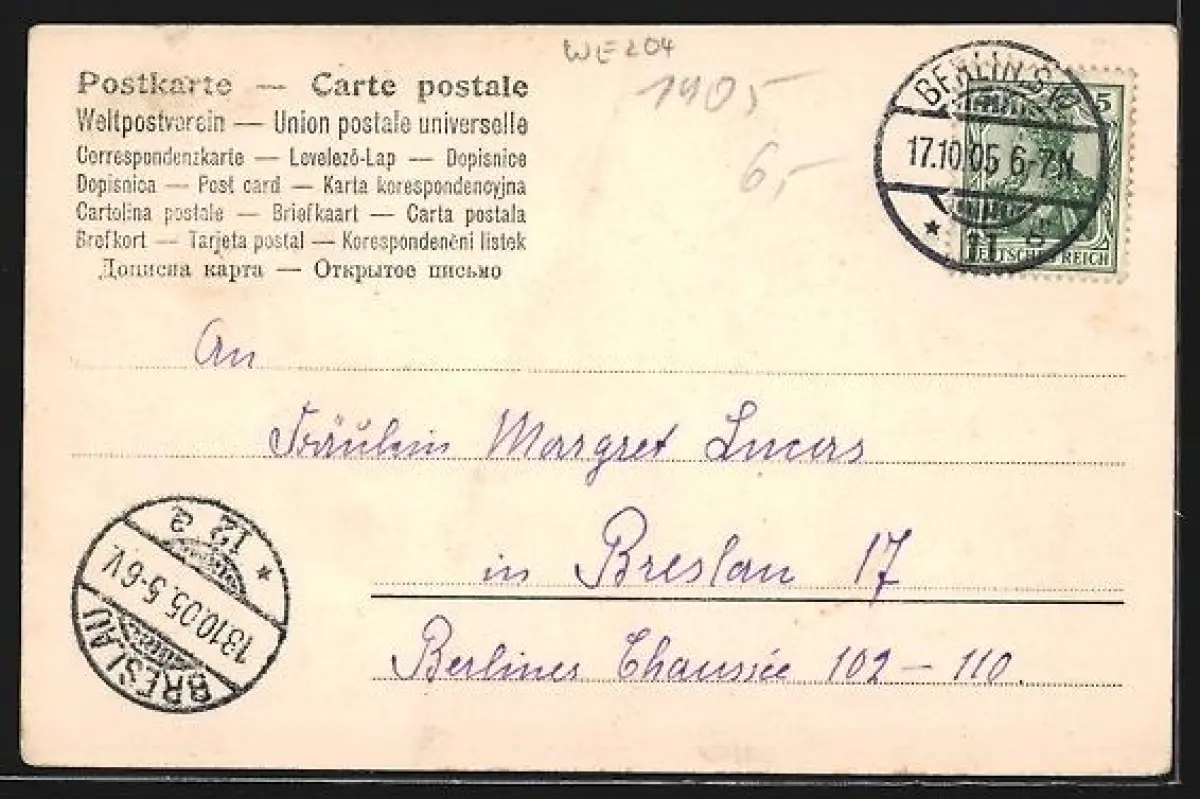 WE204
1905
6,-
Postkarte — Carte postale
Weltpostverein — Union postale universelle
Correspondenzkarte — Levelező-Lap — Dopisnice
Dopisnica — Post card — Karta korespondencyjna
Cartolina postale — Briefkaart — Carta postala
Brefkort — Tarjeta postal — Korespondenční listek
Дописна карта — Открытое письмо
BERLIN S
17.10.05 6-7N
* 11
5
DEUTSCHES REICH
An
Fräulein Margret Lucas
in Breslau 17
Berliner Chaussée 102 - 110.
BRESLAU
18.10.05. 5-6V.
* 12 a